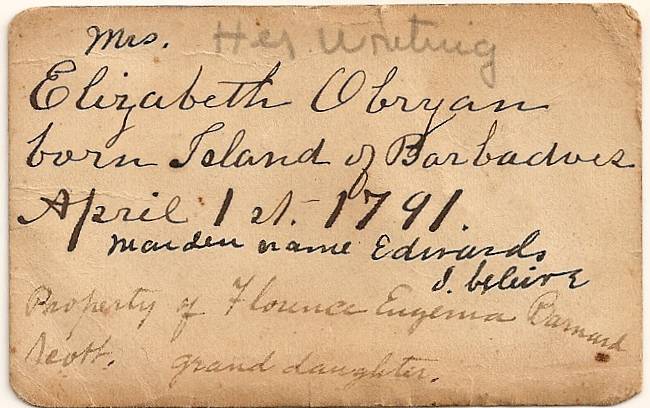 Mrs. Her Writing
Elizabeth Obryan
born Island of Barbadoes
April 1 st. 1791.
Maiden name Edwards
I. beleive
Property of Florence Eugenia Barnard
Scott. grand daughter.